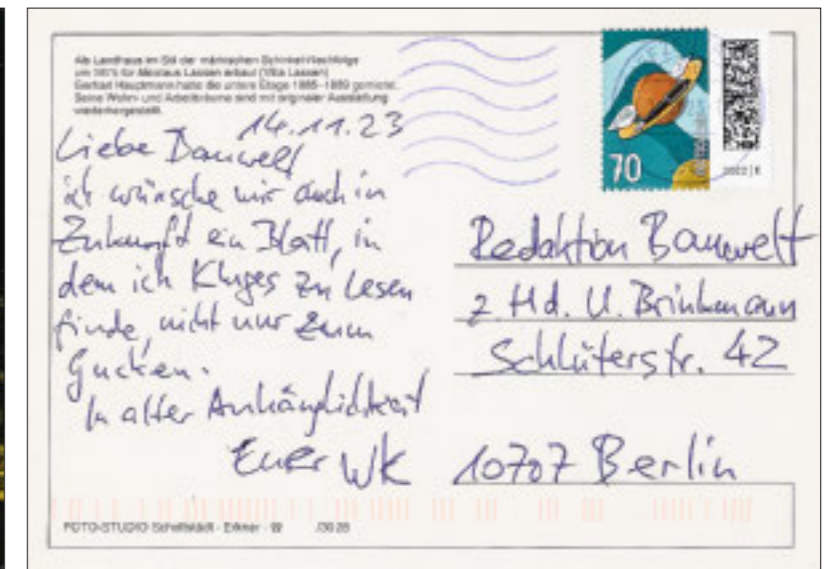 Als Landhaus im Stil der märkischen Schinkel-Nachfolge
um 1875 für Nikolaus Lassen erbaut (Villa Lassen)
Gerhart Hauptmann hatte die untere Etage 1885–1889 gemietet.
Seine Wohn- und Arbeitsräume sind mit originaler Ausstattung
wiederhergestellt.
14.11.23
Liebe Bauwelt
ich wünsche mir auch in
Zukunft ein Blatt, in
dem ich Kluges zu Lesen
finde, nicht nur zum
Gucken.
In alter Anhänglichkeit
Euer WK
70
2022 | K
Redaktion Bauwelt
z. Hd. U. Brinkmann
Schlüterstr. 42
10707 Berlin
FOTO-STUDIO Schellstädt - Erkner - ☎